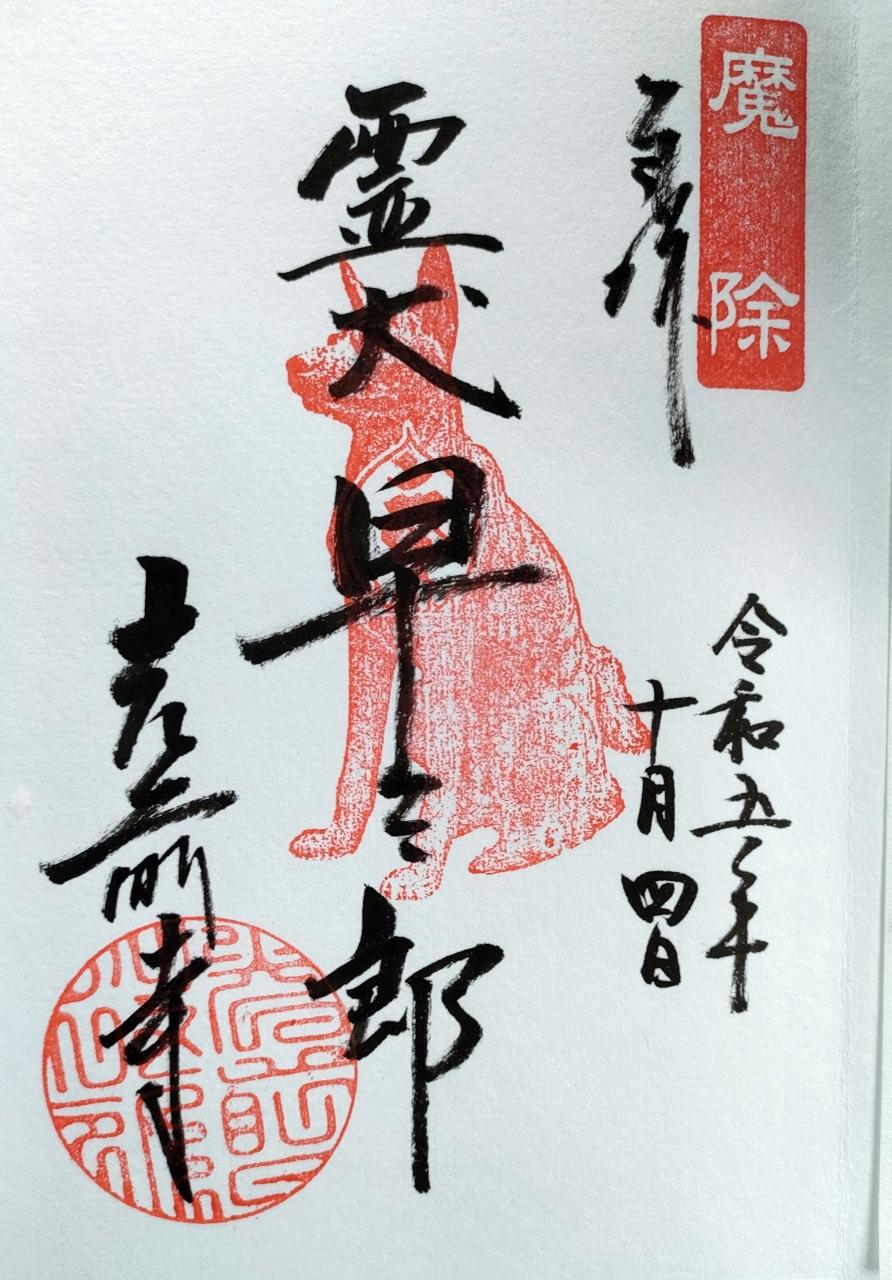 魔除
奉拝
令和五年
十月四日
霊犬早太郎
光前寺